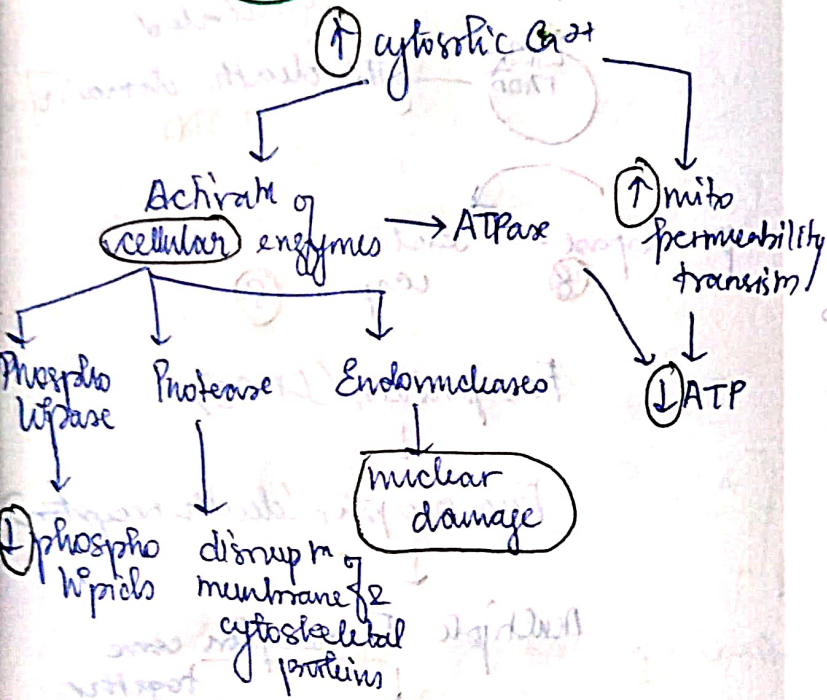 ↑ cytosolic Ca2+
Activatn of
cellular enzymes → ATPase
↑ mito
permeability
transism
Phospho
lipase
Protease
Endonucleases
↓ ATP
nuclear
damage
↓ phospho
lipids
disruptn of
membrane &
cytoskeletal
proteins